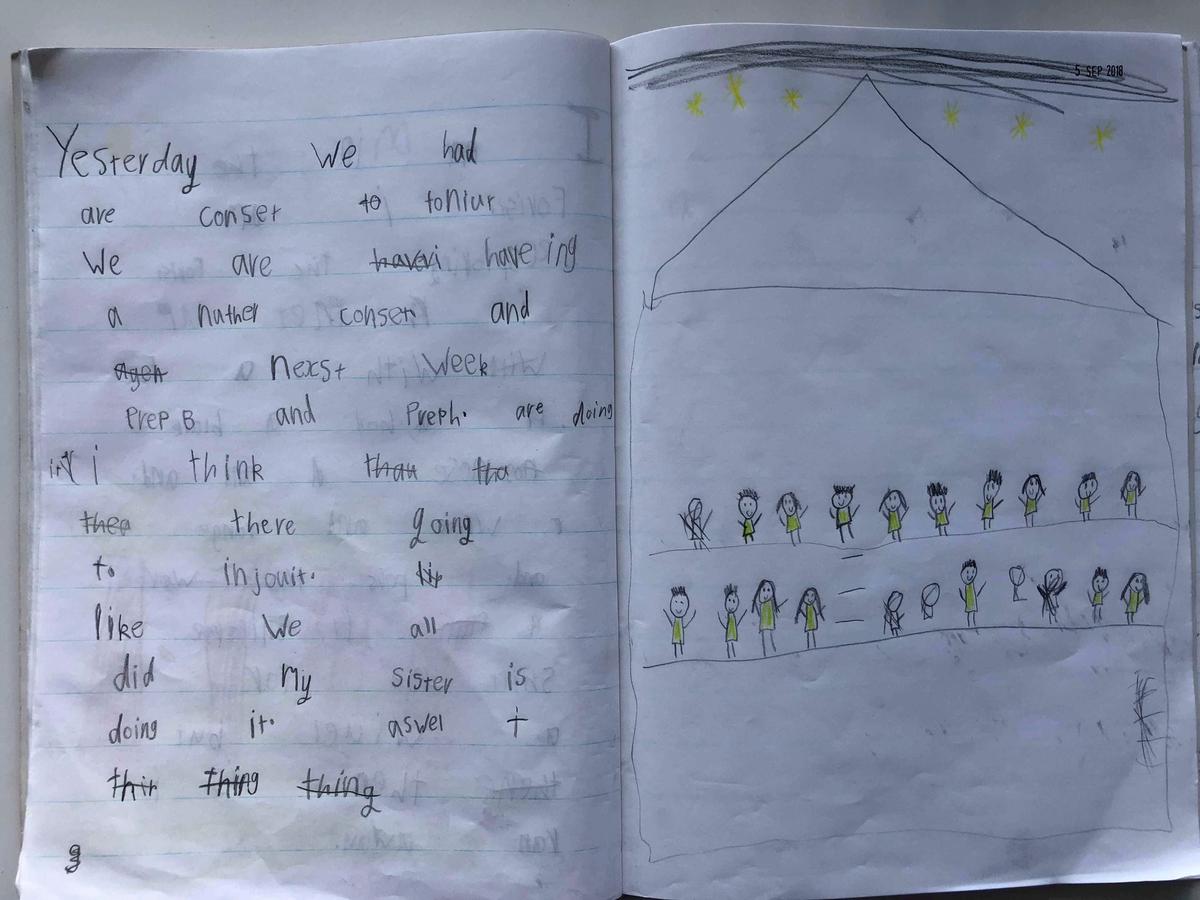 Yesterday We had
are conset to toniur
We are haveri have ing
a nuther conset and
Agen nexst Week
PreP B and PrePh. are doing
int i think than tha
thea there going
to injouit. lir
like We all
did My sister is
doing it. aswel t
thir thing thing
5 SEP 2018